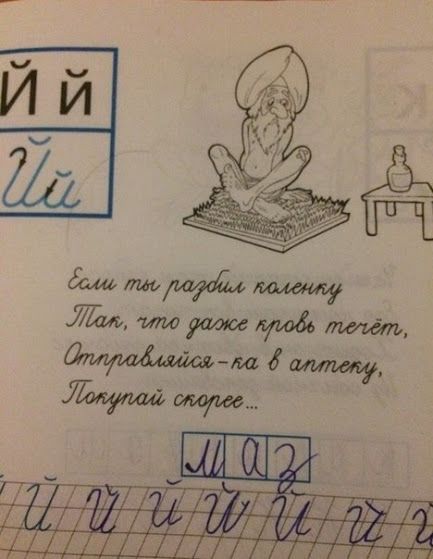 Й й
Йй
Если ты разбил коленку
Так, что даже кровь течёт,
Отправляйся-ка в аптеку,
Покупай скорее...
маз
Й Й Й Й Й Й Й